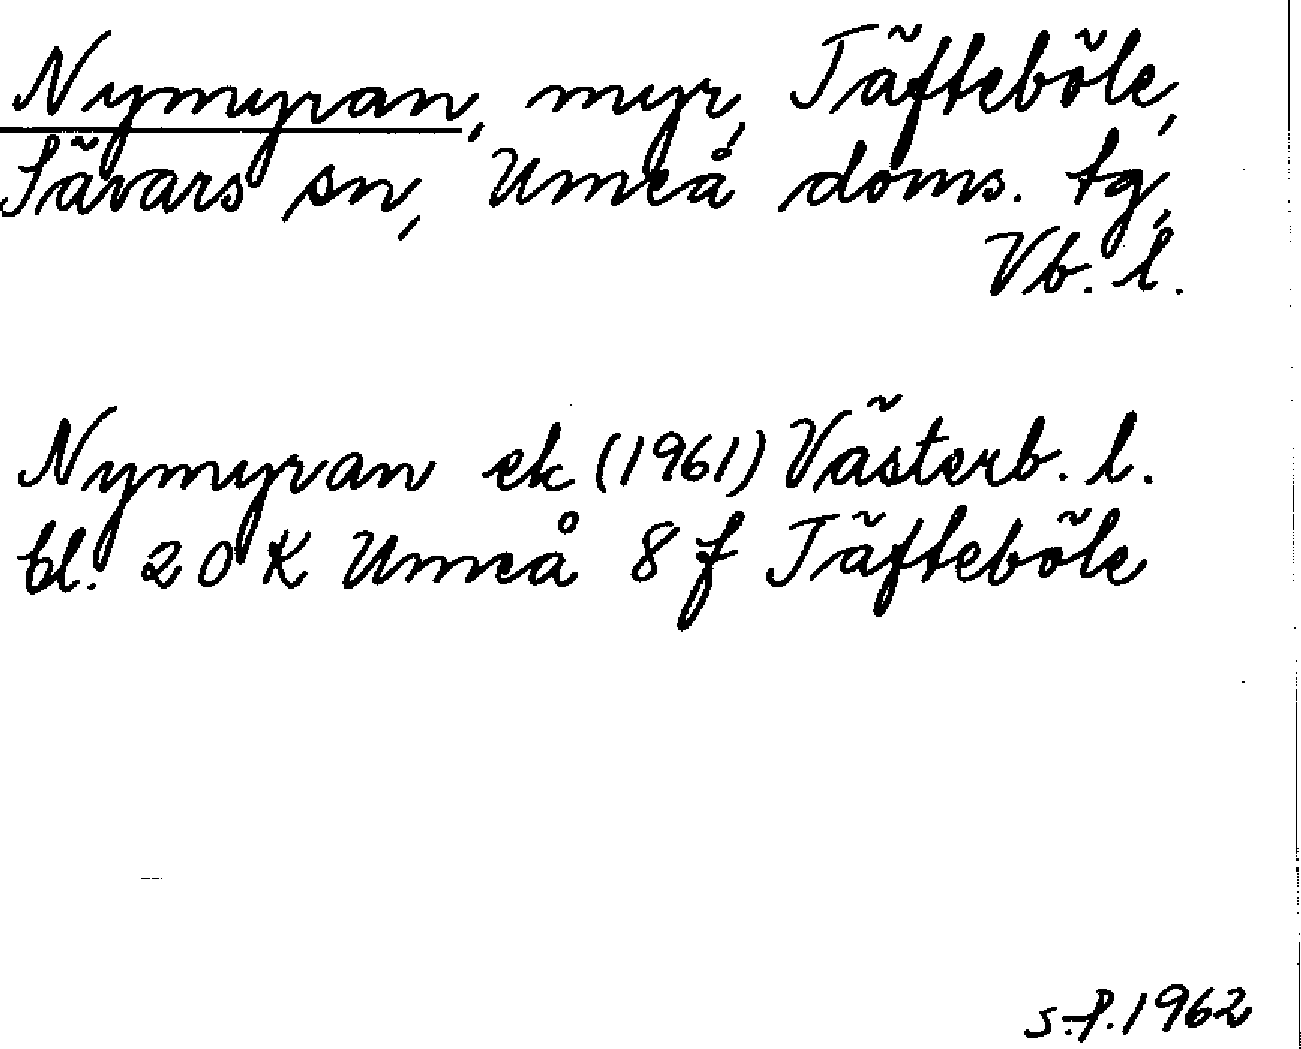 Nymyran, myr, Täfteböle,
Sävars sn, Umeå doms. tg,
Vb. l.
Nymyran ek (1961) Västerb. l.
bl. 20 K Umeå 8 f Täfteböle
S.P. 1962